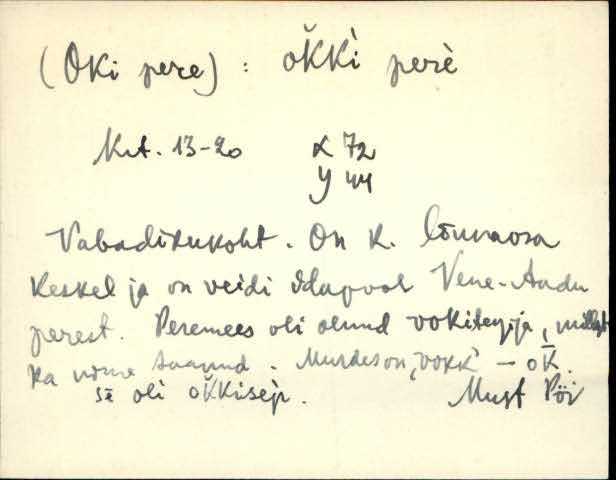 (Oki pere) : ok̆kì perè
Krt. 13-20 X 72
Y 44
Vabadikukoht. On k. lõunaosa
keskel ja on veidi idapool Vene-Aadu
perest. Peremees oli olnud vokitegija, millest
ka nime saanud. Murdes on "vokk" – ok̄.
sē oli ok̆kisep̀.
Must Pöi